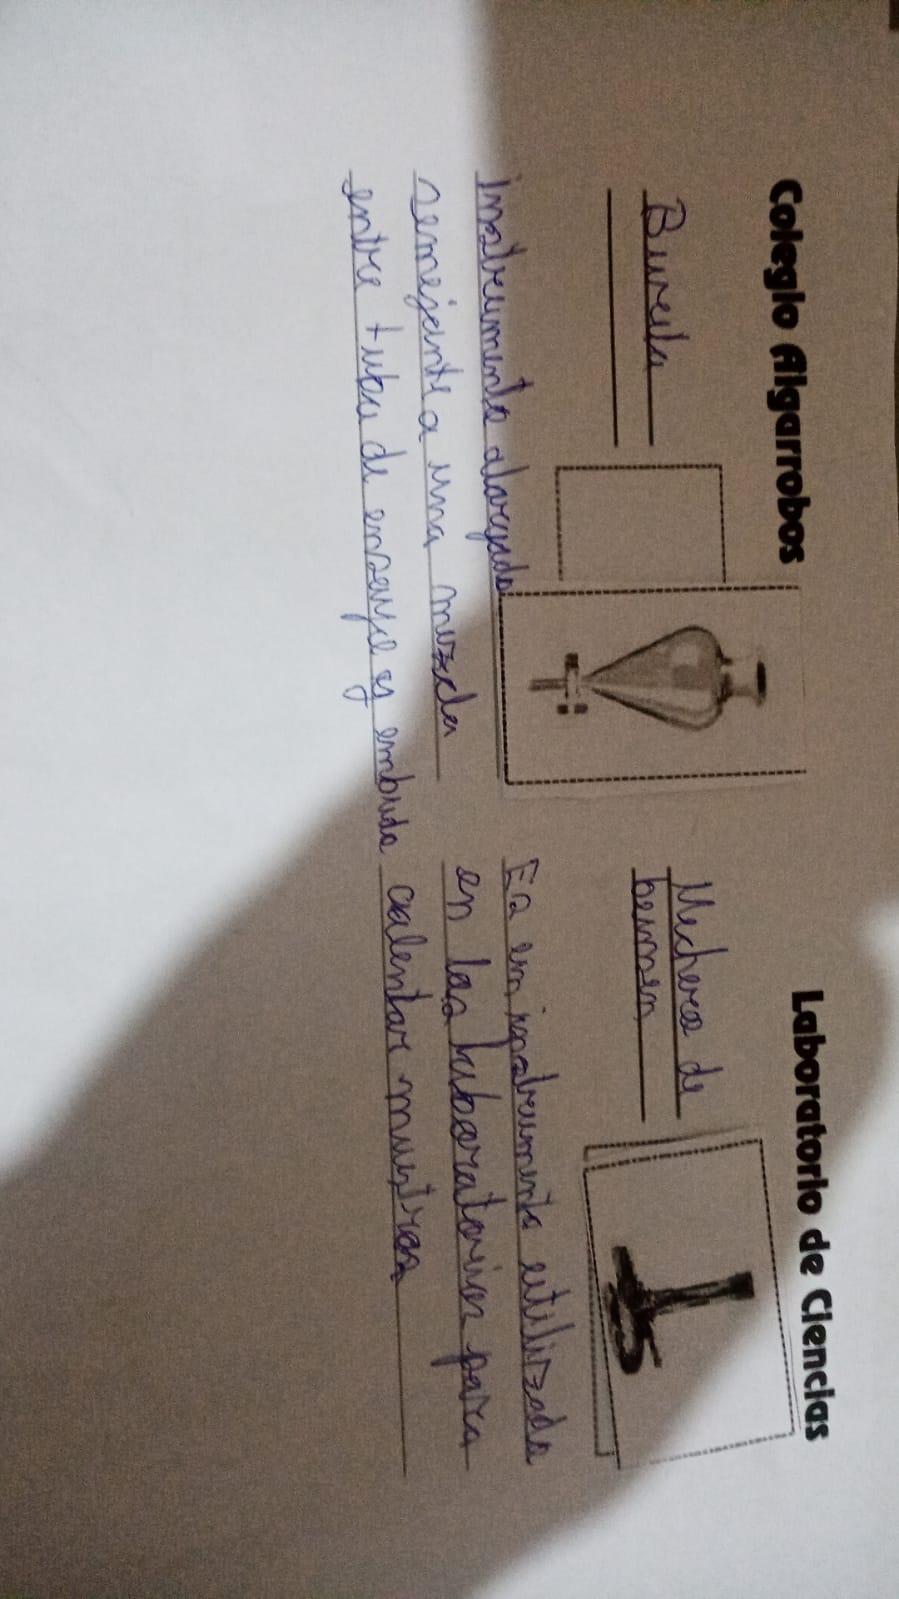 Colegio Algarrobos
Laboratorio de Ciencias
Bureta
Instrumento alargado
semejante a una mezcla
entre tubo de ensaye y embudo
Mechero de
bunsen
Es un instrumento utilizado
en los laboratorios para
calentar muestras